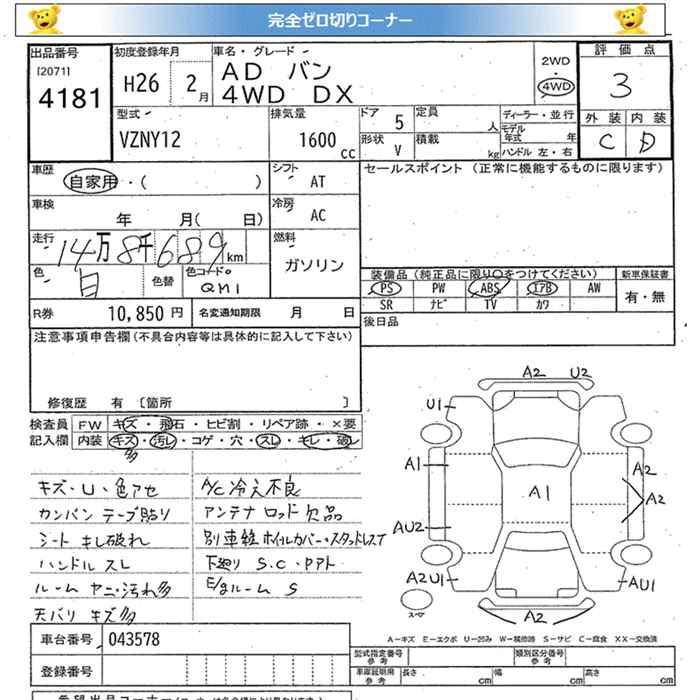 完全ゼロ切りコーナー
出品番号 初度登録年月 車名・グレード 2WD ・ 4WD 評価点
[2071] 4181 H26 2月 AD バン 3
4WD DX
型式 排気量 ドア 5 定員 人 ディーラー・並行 外装 内装
VZNY12 1600cc 形状 V 積載 kg モデル年式 年 C D
ハンドル 左・右
車歴 自家用・( ) シフト AT セールスポイント (正常に機能するものに限ります)
車検 年 月( 日) 冷房 AC
走行 14万8千689km 燃料 ガソリン
色 白 色替 色コードNo. QM1 装備品(純正品に限り○をつけてください) 新車保証書
PS PW ABS エアB AW 有・無
SR ナビ TV カワ
R券 10,850円 名変通知期限 月 日 後日品
注意事項申告欄(不具合内容等は具体的に記入して下さい)
修復歴 有 〔箇所 〕
検査員 FW キズ・飛石・ヒビ割・リペア跡・×要
記入欄 内装 キズ・汚レ・コゲ・穴・スレ・キレ・破レ
多
キズ・U・色アセ A/C冷え不良
カンバン テープ貼り アンテナ ロッド 欠品
シート キレ破れ 別車種ホイルカバー・スタッドレスT
ハンドル スレ 下廻り S.C・Pアト
ルーム ヤニ・汚れ多 E/gルーム S
天バリ キズ多
A2 U2
U1
A1 A1 A2
A2
AU2
A2U1 AU1
スペア A2
A−キズ E−エクボ U−凹み W−補修跡 S−サビ C−腐食 XX−交換済
車台番号 043578 型式指定番号 参考 類別区分番号 参考
登録番号 車庫証明用 参考 長さ cm 幅 cm 高さ cm